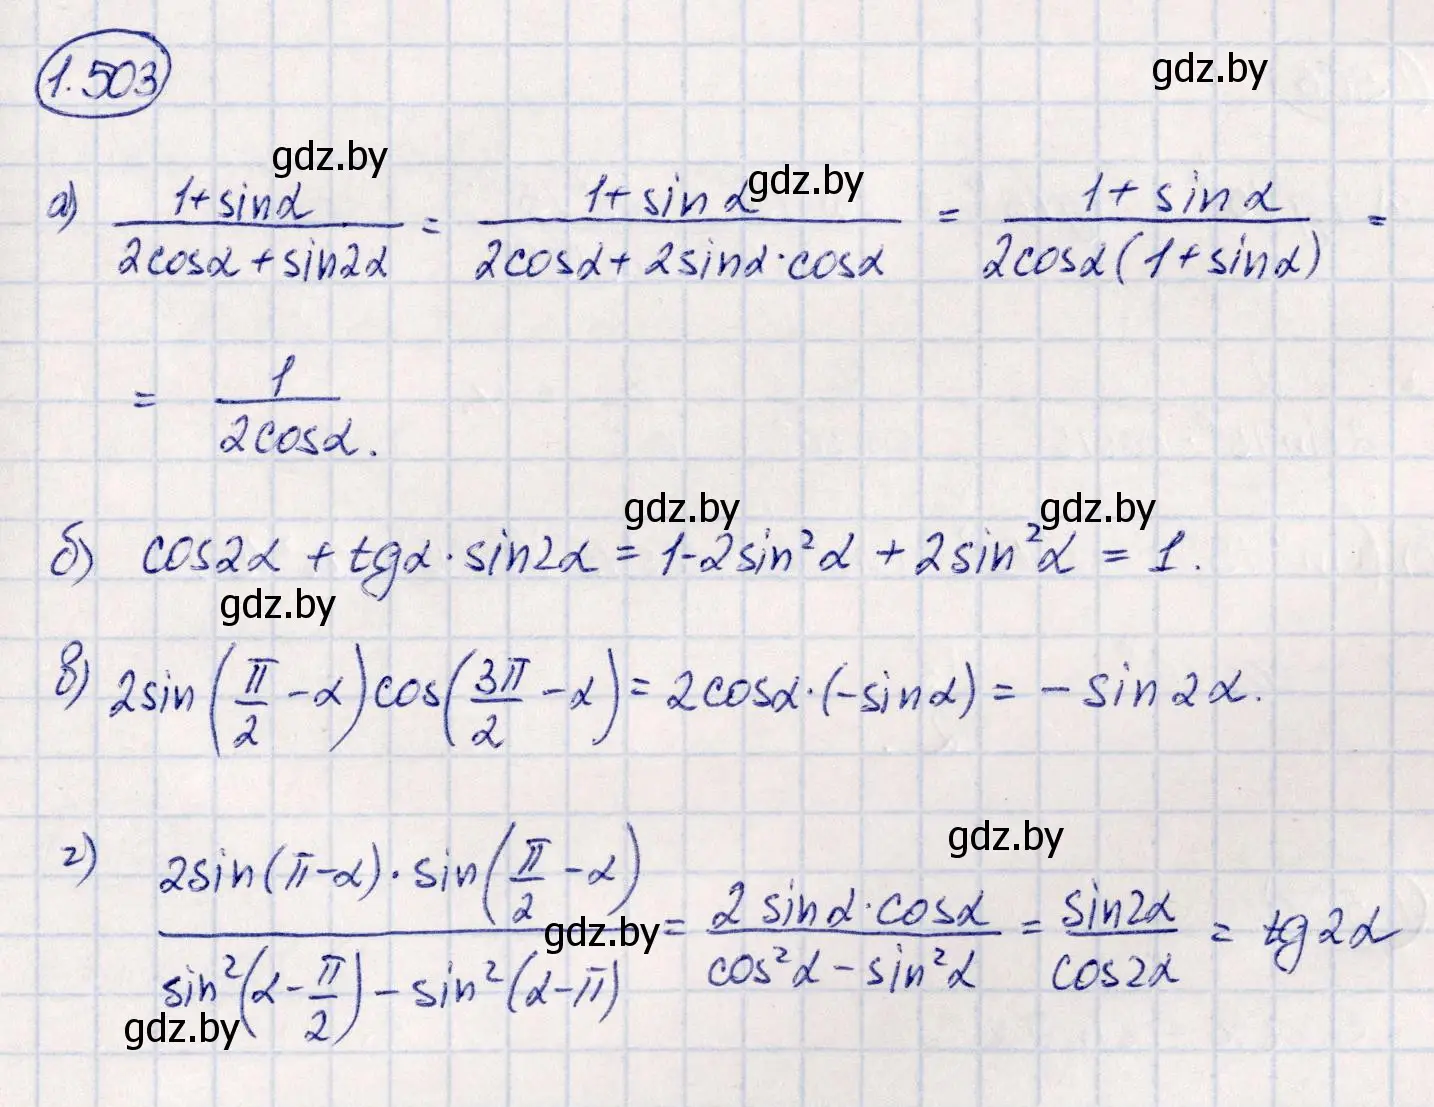 1.503
gdz.by
gdz.by
gdz.by
а) (1+sinα)/(2cosα+sin2α) = (1+sinα)/(2cosα+2sinα·cosα) = (1+sinα)/(2cosα(1+sinα)) =
= 1/(2cosα).
gdz.by
gdz.by
б) cos2α + tgα·sin2α = 1-2sin²α + 2sin²α = 1.
gdz.by
в) 2sin(π/2 - α)cos(3π/2 - α) = 2cosα·(-sinα) = -sin2α.
gdz.by
г) (2sin(π-α)·sin(π/2 - α))/(sin²(α-π/2) - sin²(α-π)) = (2sinα·cosα)/(cos²α - sin²α) = sin2α/cos2α = tg2α
gdz.by
gdz.by